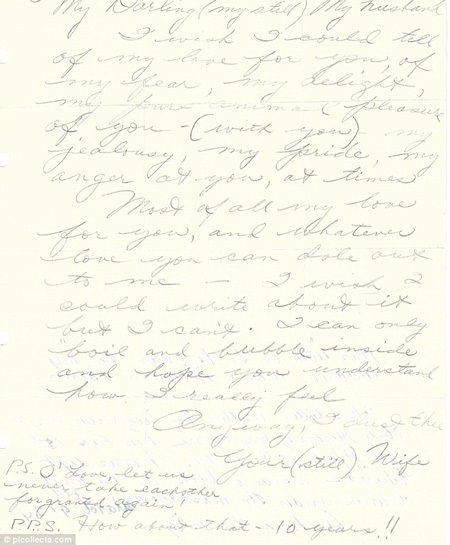 My Darling (my still) My husband
I wish I could tell
of my love for you, of
my fear, my delight,
my pure animal pleasure
of you - (with you) - my
jealousy, my pride, my
anger at you, at times
Most of all my love
for you, and whatever
love you can dole out
to me — I wish I
could write about it
but I can't. I can only
"boil and bubble" inside
and hope you understand
how I really feel
Anyway, I just
Your (still) Wife
P.S. O Love, let us
never take eachother
for granted again!
P.P.S. How about that - 10 years!!
© picollecta.com